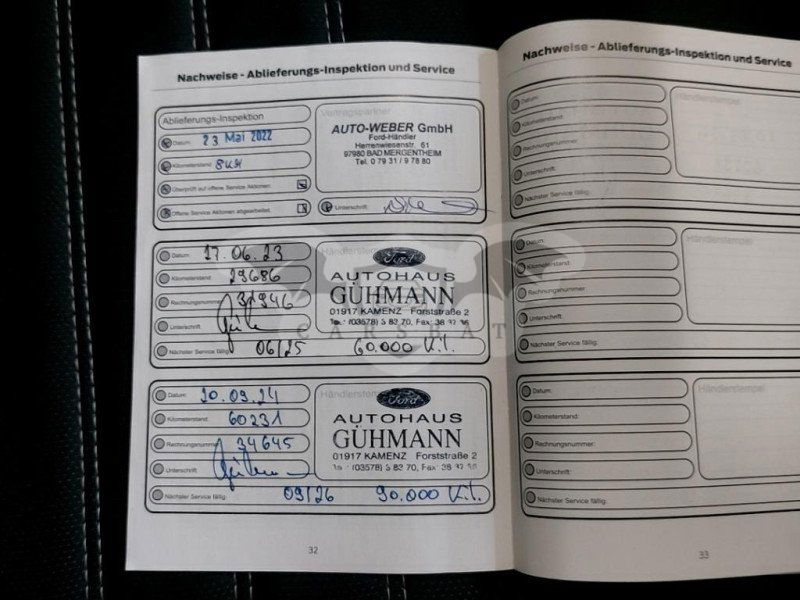 Nachweise - Ablieferungs-Inspektion und Service
Ablieferungs-Inspektion
Datum: 23 Mai 2022
Kilometerstand: 8 KM
Überprüft auf offene Service Aktionen:
Offene Service Aktionen abgearbeitet:
Vertragspartner
AUTO-WEBER GmbH
Ford-Händler
Herrenwiesenstr. 61
97980 BAD MERGENTHEIM
Tel. 0 79 31 / 9 78 80
Unterschrift:
Datum: 17.06.23
Kilometerstand: 29686
Rechnungsnummer:
Unterschrift:
Nächster Service fällig: 06/25 60.000
Händlerstempel
Ford
AUTOHAUS
GÜHMANN
01917 KAMENZ Forststraße 2
CARSBAT
Datum: 20.09.24
Kilometerstand: 60231
Rechnungsnummer: 34645
Unterschrift:
Nächster Service fällig: 09/26 90.000
Händlerstempel
Ford
AUTOHAUS
GÜHMANN
01917 KAMENZ Forststraße 2
32
Nachweise - Ablieferungs-Inspektion und Service
Datum:
Kilometerstand:
Rechnungsnummer:
Unterschrift:
Nächster Service fällig:
Händlerstempel
Datum:
Kilometerstand:
Rechnungsnummer:
Unterschrift:
Nächster Service fällig:
Händlerstempel
Datum:
Kilometerstand:
Rechnungsnummer:
Unterschrift:
Nächster Service fällig:
Händlerstempel
33